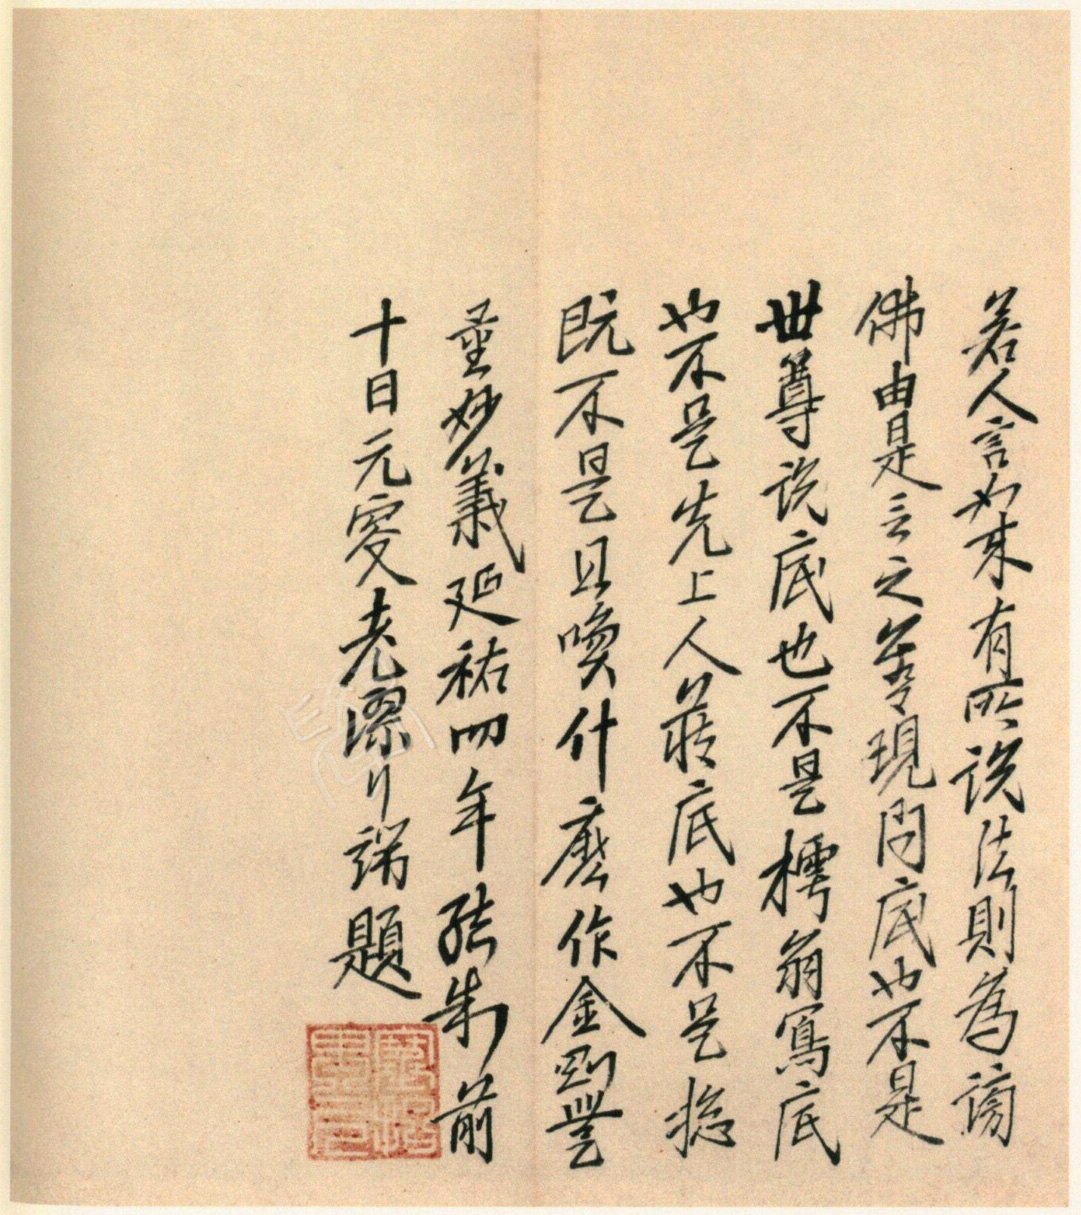 若人言如來有所說法則為謗
佛由是言之善現問底也不是
世尊說底也不是樗翁寫底
也不是先上人藏底也不是總
既不是且喚什麼作金剛無
量妙義延祐四年結制前
十日元叟老行端題